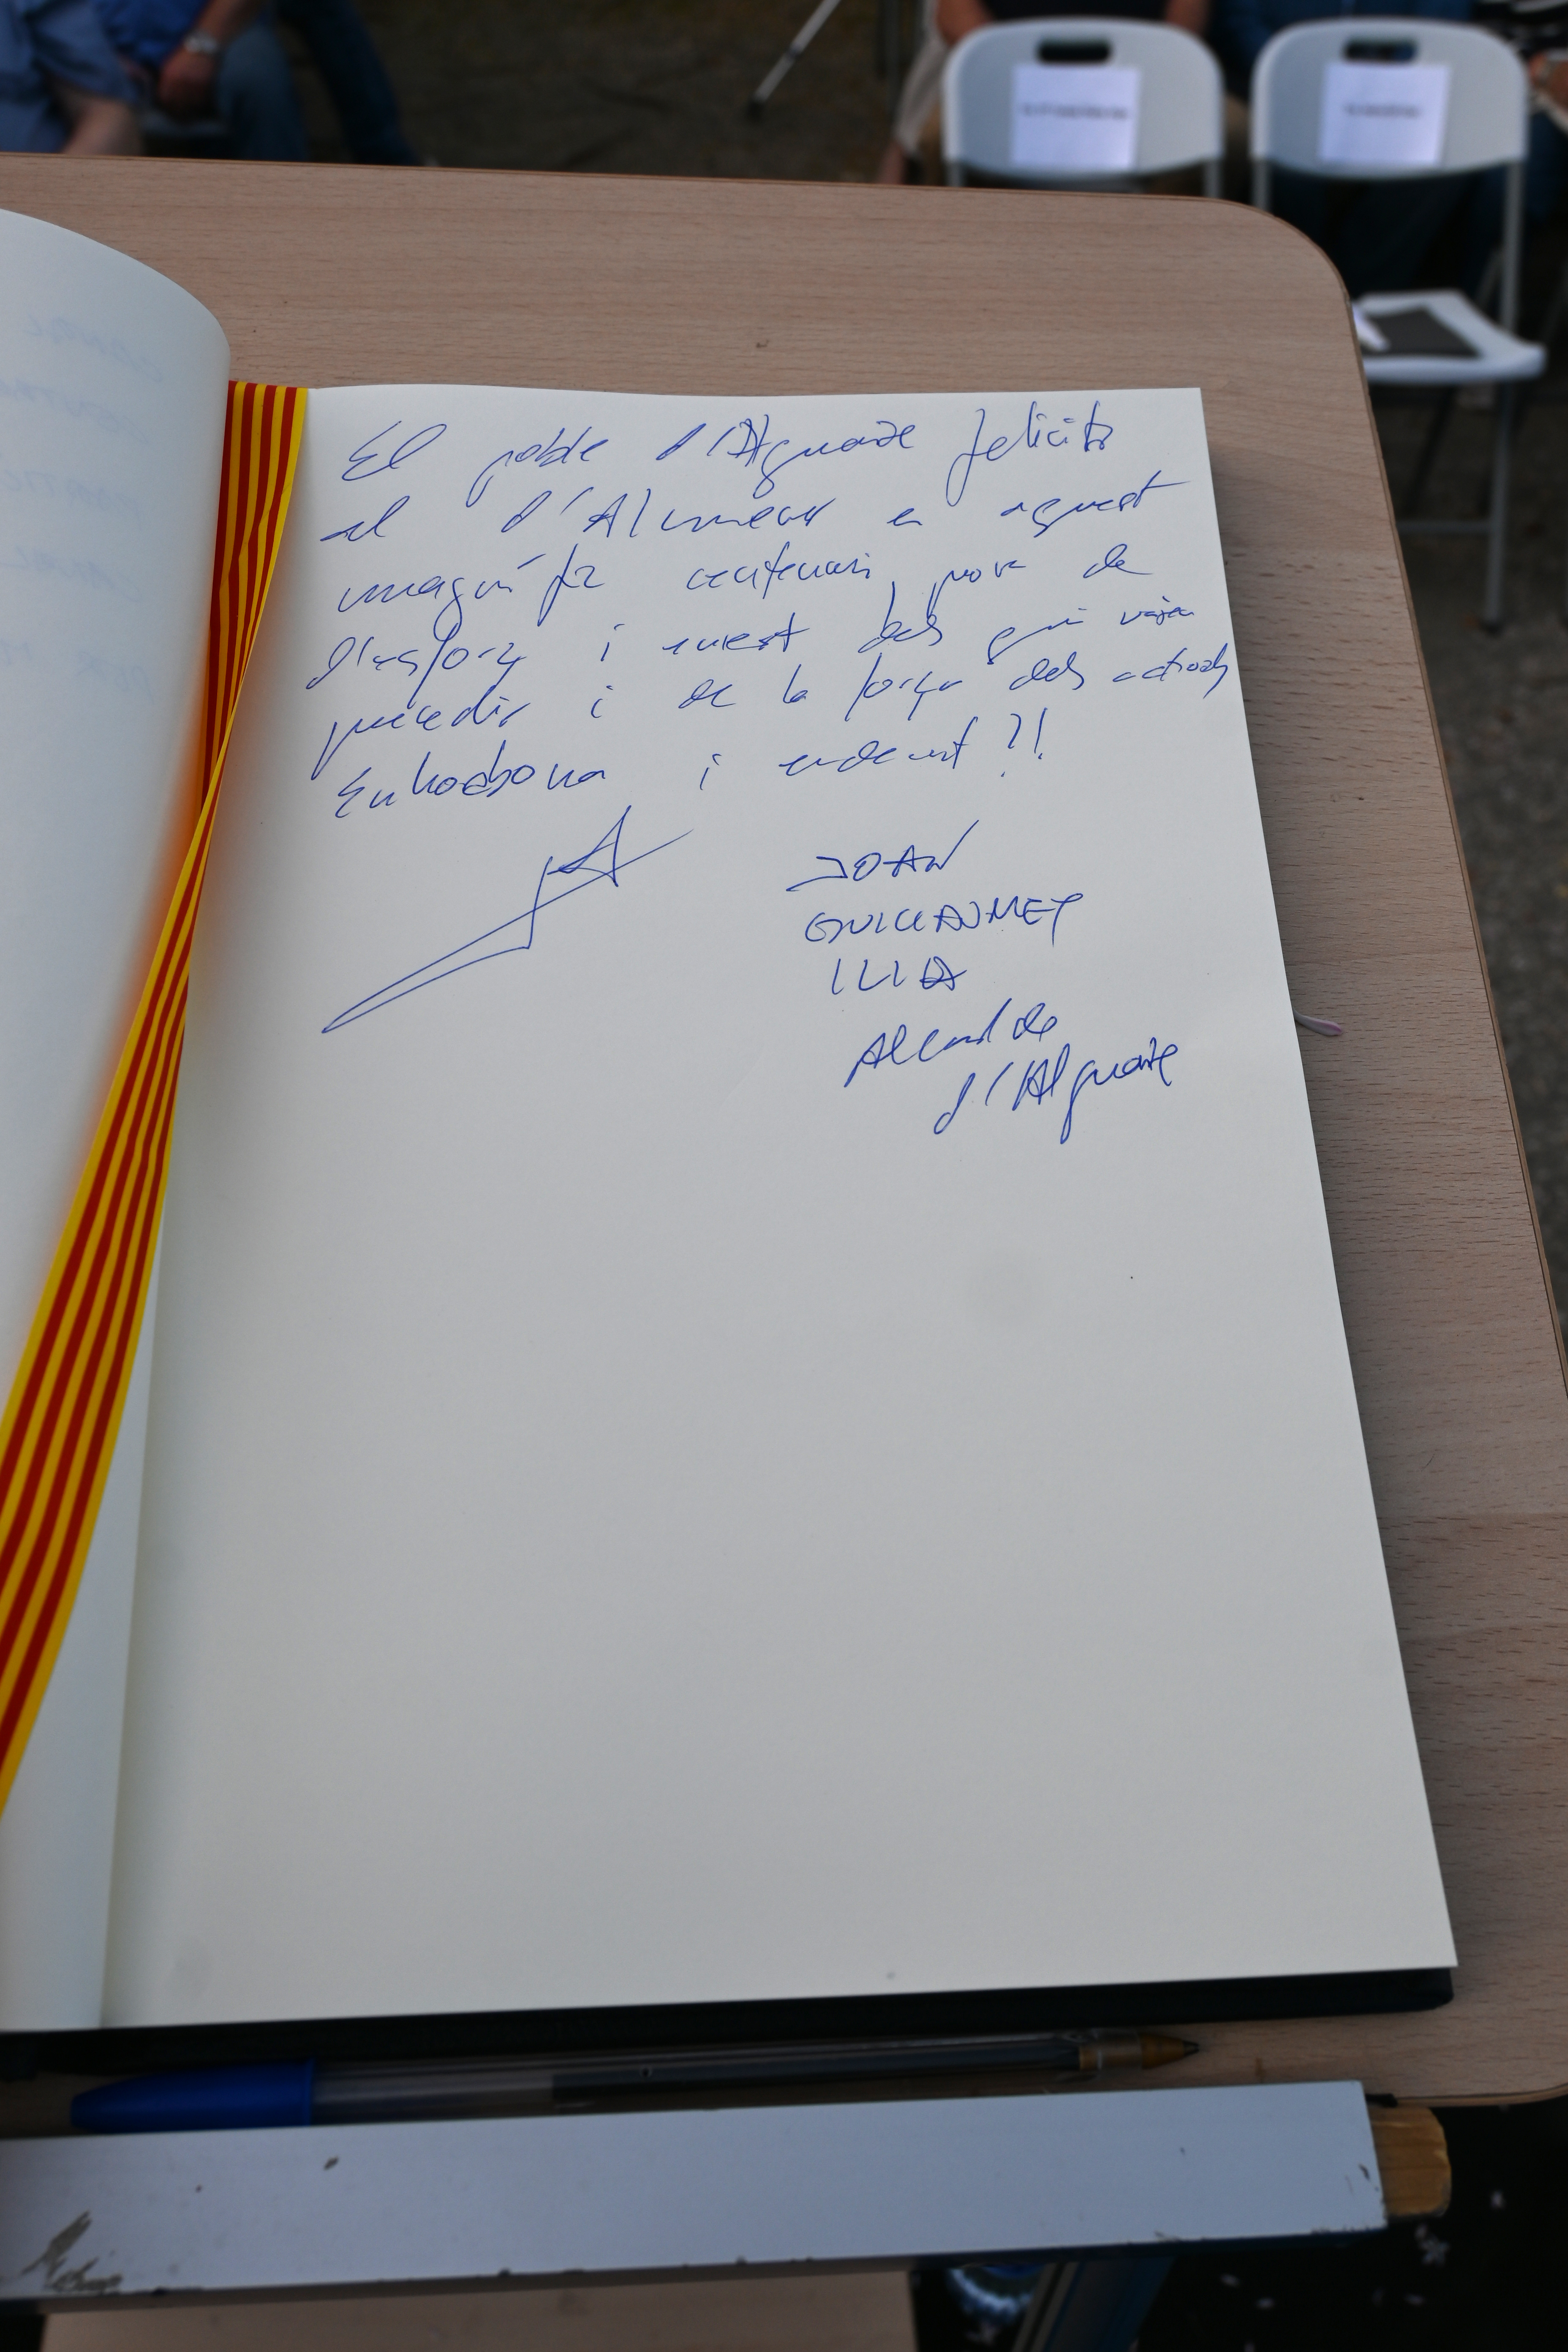 El poble d'Alguaire felicita
al d'Alumeus en aquest
magnífic centenari, prova de
l'esforç i dels qui varen
precedir i de la força dels actuals
Enhorabona i endavant!!
JOAN
GUILLAUMET
ILLA
Alcalde
d'Alguaire